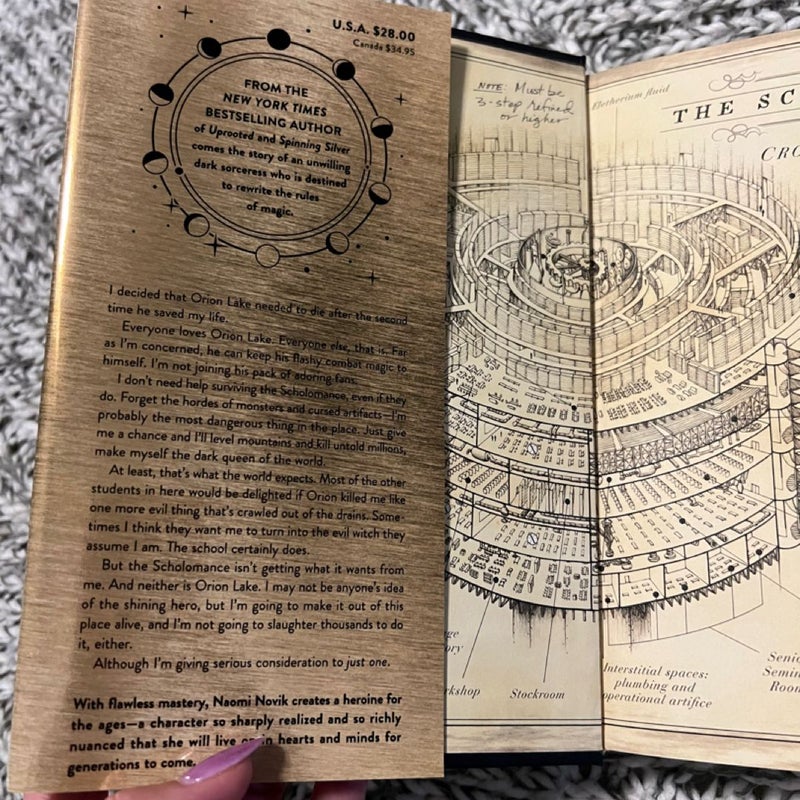 U.S.A. $28.00
Canada $34.95
FROM THE
NEW YORK TIMES
BESTSELLING AUTHOR
of Uprooted and Spinning Silver
comes the story of an unwilling
dark sorceress who is destined
to rewrite the rules
of magic.
I decided that Orion Lake needed to die after the second
time he saved my life.
Everyone loves Orion Lake. Everyone else, that is. Far
as I'm concerned, he can keep his flashy combat magic to
himself. I'm not joining his pack of adoring fans.
I don't need help surviving the Scholomance, even if they
do. Forget the hordes of monsters and cursed artifacts—I'm
probably the most dangerous thing in the place. Just give
me a chance and I'll level mountains and kill untold millions,
make myself the dark queen of the world.
At least, that's what the world expects. Most of the other
students in here would be delighted if Orion killed me like
one more evil thing that's crawled out of the drains. Some-
times I think they want me to turn into the evil witch they
assume I am. The school certainly does.
But the Scholomance isn't getting what it wants from
me. And neither is Orion Lake. I may not be anyone's idea
of the shining hero, but I'm going to make it out of this
place alive, and I'm not going to slaughter thousands to do
it, either.
Although I'm giving serious consideration to just one.
With flawless mastery, Naomi Novik creates a heroine for
the ages—a character so sharply realized and so richly
nuanced that she will live on in hearts and minds for
generations to come.
NOTE: Must be
3-step refined
or higher
Etetherium fluid
THE SC
CRO
rkshop
Stockroom
Interstitial spaces:
plumbing and
operational artifice
Senio
Semin
Room